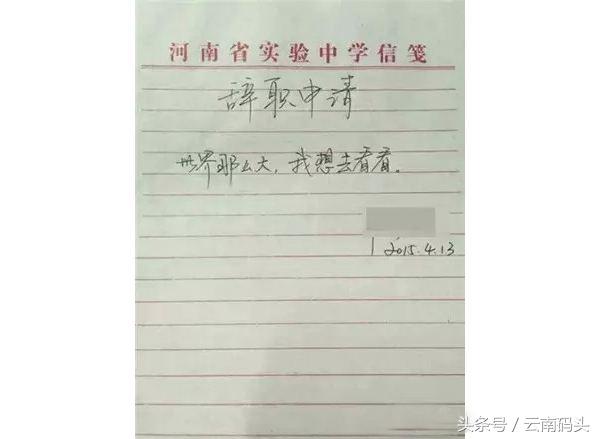 河南省实验中学信笺
辞职申请
世界那么大，我想去看看。
2015.4.13
头条号/云南码头